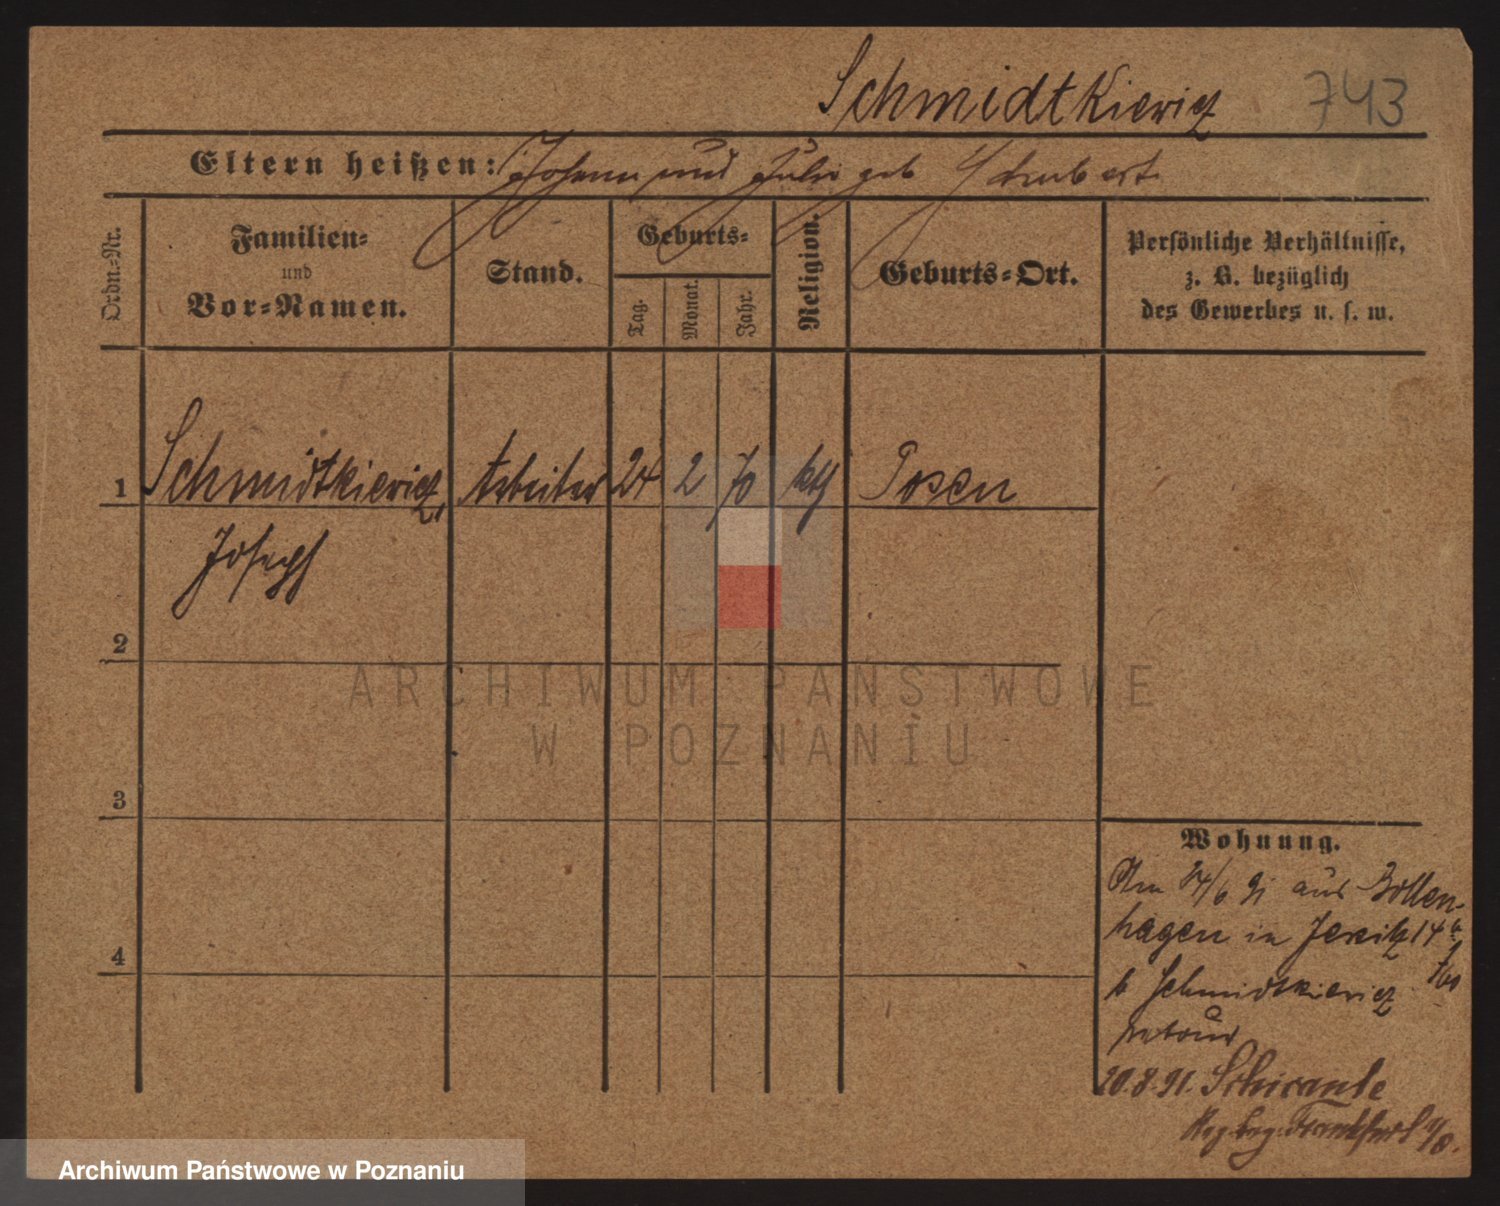 Schmidtkiewicz 743
Eltern heißen: Johann und Julie geb Schubert
Ordn.-Nr.
Familien-
und
Vor-Namen.
Stand.
Geburts-
Tag.
Monat.
Jahr.
Religion.
Geburts-Ort.
Persönliche Verhältnisse,
z. B. bezüglich
des Gewerbes u. s. w.
1 Schmidtkiewicz, Arbeiter 24 2 70 kth Posen
Joseph
2
3
4
ARCHIWUM PAŃSTWOWE
W POZNANIU
Wohnung.
Am 24/6 91 aus Bollen-
hagen in Jersitz 14
b Schmidtkiewicz
retour
20.8.91. Schwante
Reg. Bez. Frankfurt a/O.
Archiwum Państwowe w Poznaniu